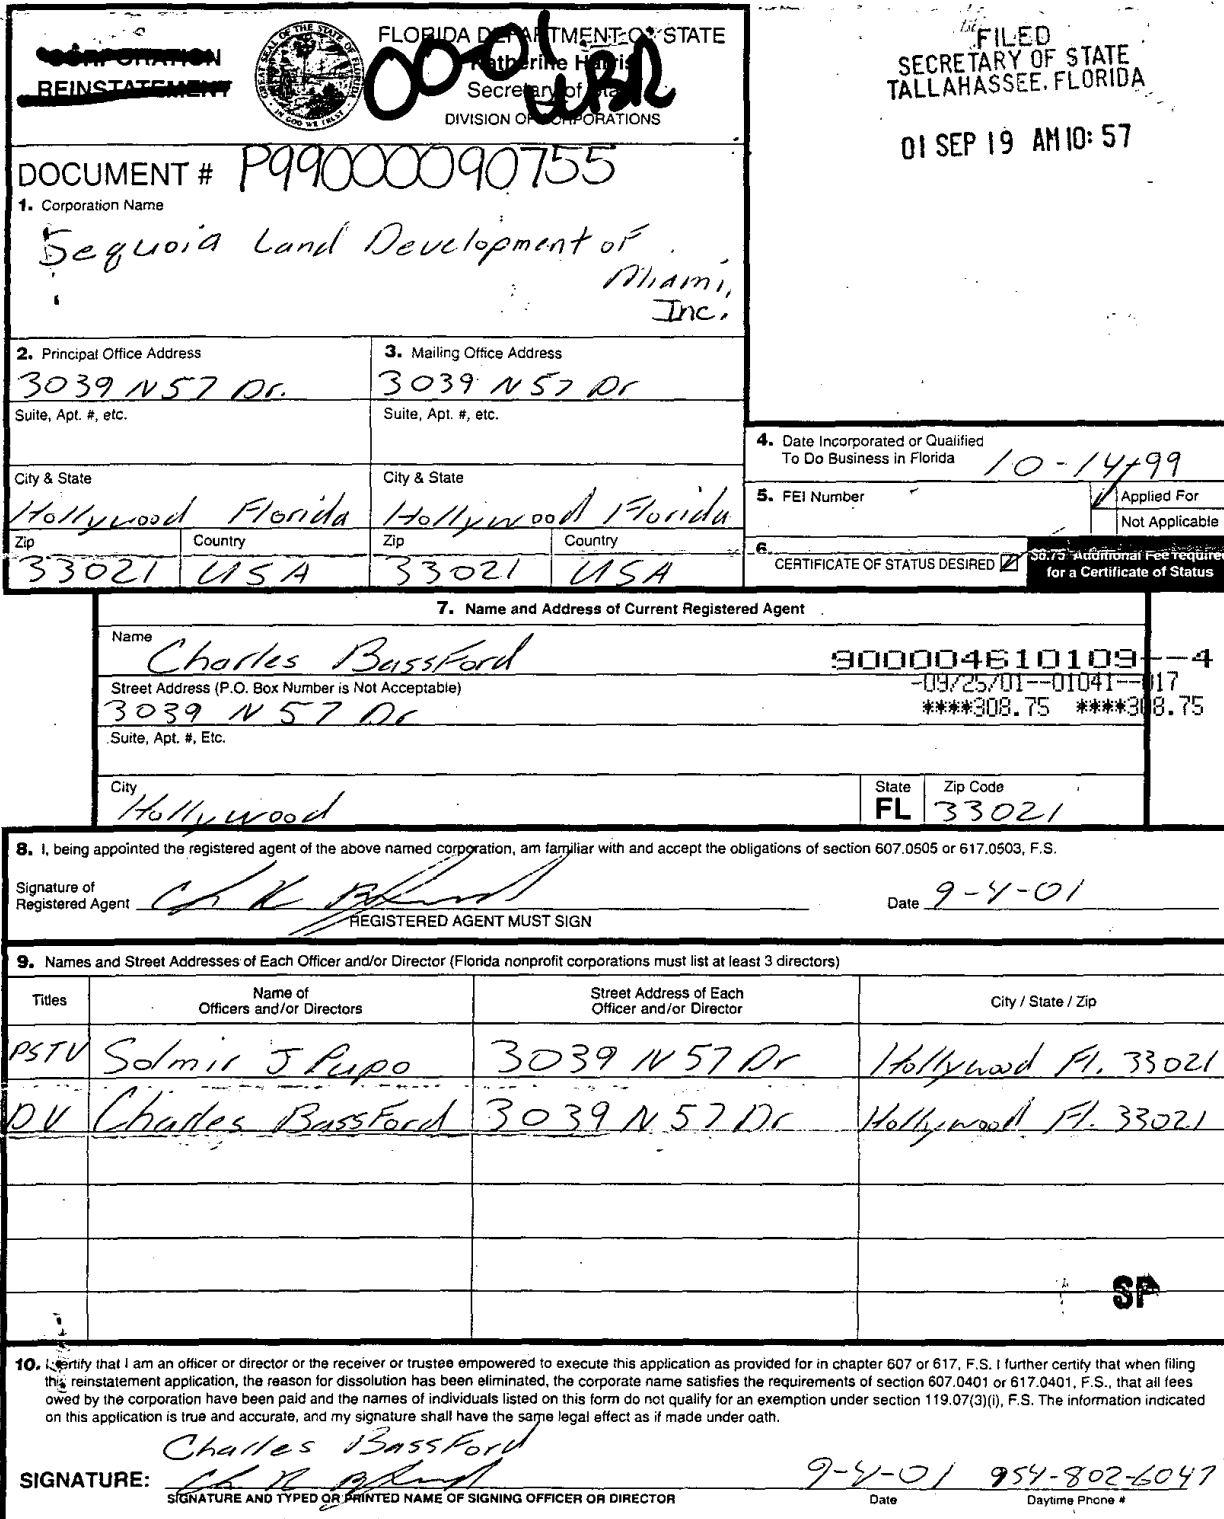 CORPORATION
REINSTATEMENT
GREAT SEAL OF THE STATE OF FLORIDA
IN GOD WE TRUST
FLORIDA DEPARTMENT OF STATE
Katherine Harris
Secretary of State
DIVISION OF CORPORATIONS
00-01
UBR
FILED
SECRETARY OF STATE
TALLAHASSEE, FLORIDA
01 SEP 19 AM 10: 57
DOCUMENT # P99000090755
1. Corporation Name
Sequoia Land Development of
Miami,
Inc.
2. Principal Office Address
3039 N 57 Dr.
3. Mailing Office Address
3039 N 57 Dr
Suite, Apt. #, etc.
Suite, Apt. #, etc.
City & State
Hollywood Florida
City & State
Hollywood Florida
Zip
33021
Country
USA
Zip
33021
Country
USA
4. Date Incorporated or Qualified
To Do Business in Florida 10-14-99
5. FEI Number
Applied For
Not Applicable
6.
CERTIFICATE OF STATUS DESIRED
$8.75 Additional Fee required
for a Certificate of Status
7. Name and Address of Current Registered Agent
Name
Charles BassFord
900004610109--4
-09/25/01--01041--017
****308.75 ****308.75
Street Address (P.O. Box Number is Not Acceptable)
3039 N 57 Dr
Suite, Apt. #, Etc.
City
Hollywood
State
FL
Zip Code
33021
8. I, being appointed the registered agent of the above named corporation, am familiar with and accept the obligations of section 607.0505 or 617.0503, F.S.
Signature of
Registered Agent
Date 9-4-01
REGISTERED AGENT MUST SIGN
9. Names and Street Addresses of Each Officer and/or Director (Florida nonprofit corporations must list at least 3 directors)
Titles
Name of
Officers and/or Directors
Street Address of Each
Officer and/or Director
City / State / Zip
PSTV Solmir J Pupo 3039 N 57 Dr Hollywood Fl. 33021
DV Charles BassFord 3039 N 57 Dr Hollywood Fl. 33021
SP
10. I certify that I am an officer or director or the receiver or trustee empowered to execute this application as provided for in chapter 607 or 617, F.S. I further certify that when filing
this reinstatement application, the reason for dissolution has been eliminated, the corporate name satisfies the requirements of section 607.0401 or 617.0401, F.S., that all fees
owed by the corporation have been paid and the names of individuals listed on this form do not qualify for an exemption under section 119.07(3)(i), F.S. The information indicated
on this application is true and accurate, and my signature shall have the same legal effect as if made under oath.
Charles BassFord
SIGNATURE:
9-4-01 954-802-6047
SIGNATURE AND TYPED OR PRINTED NAME OF SIGNING OFFICER OR DIRECTOR
Date
Daytime Phone #